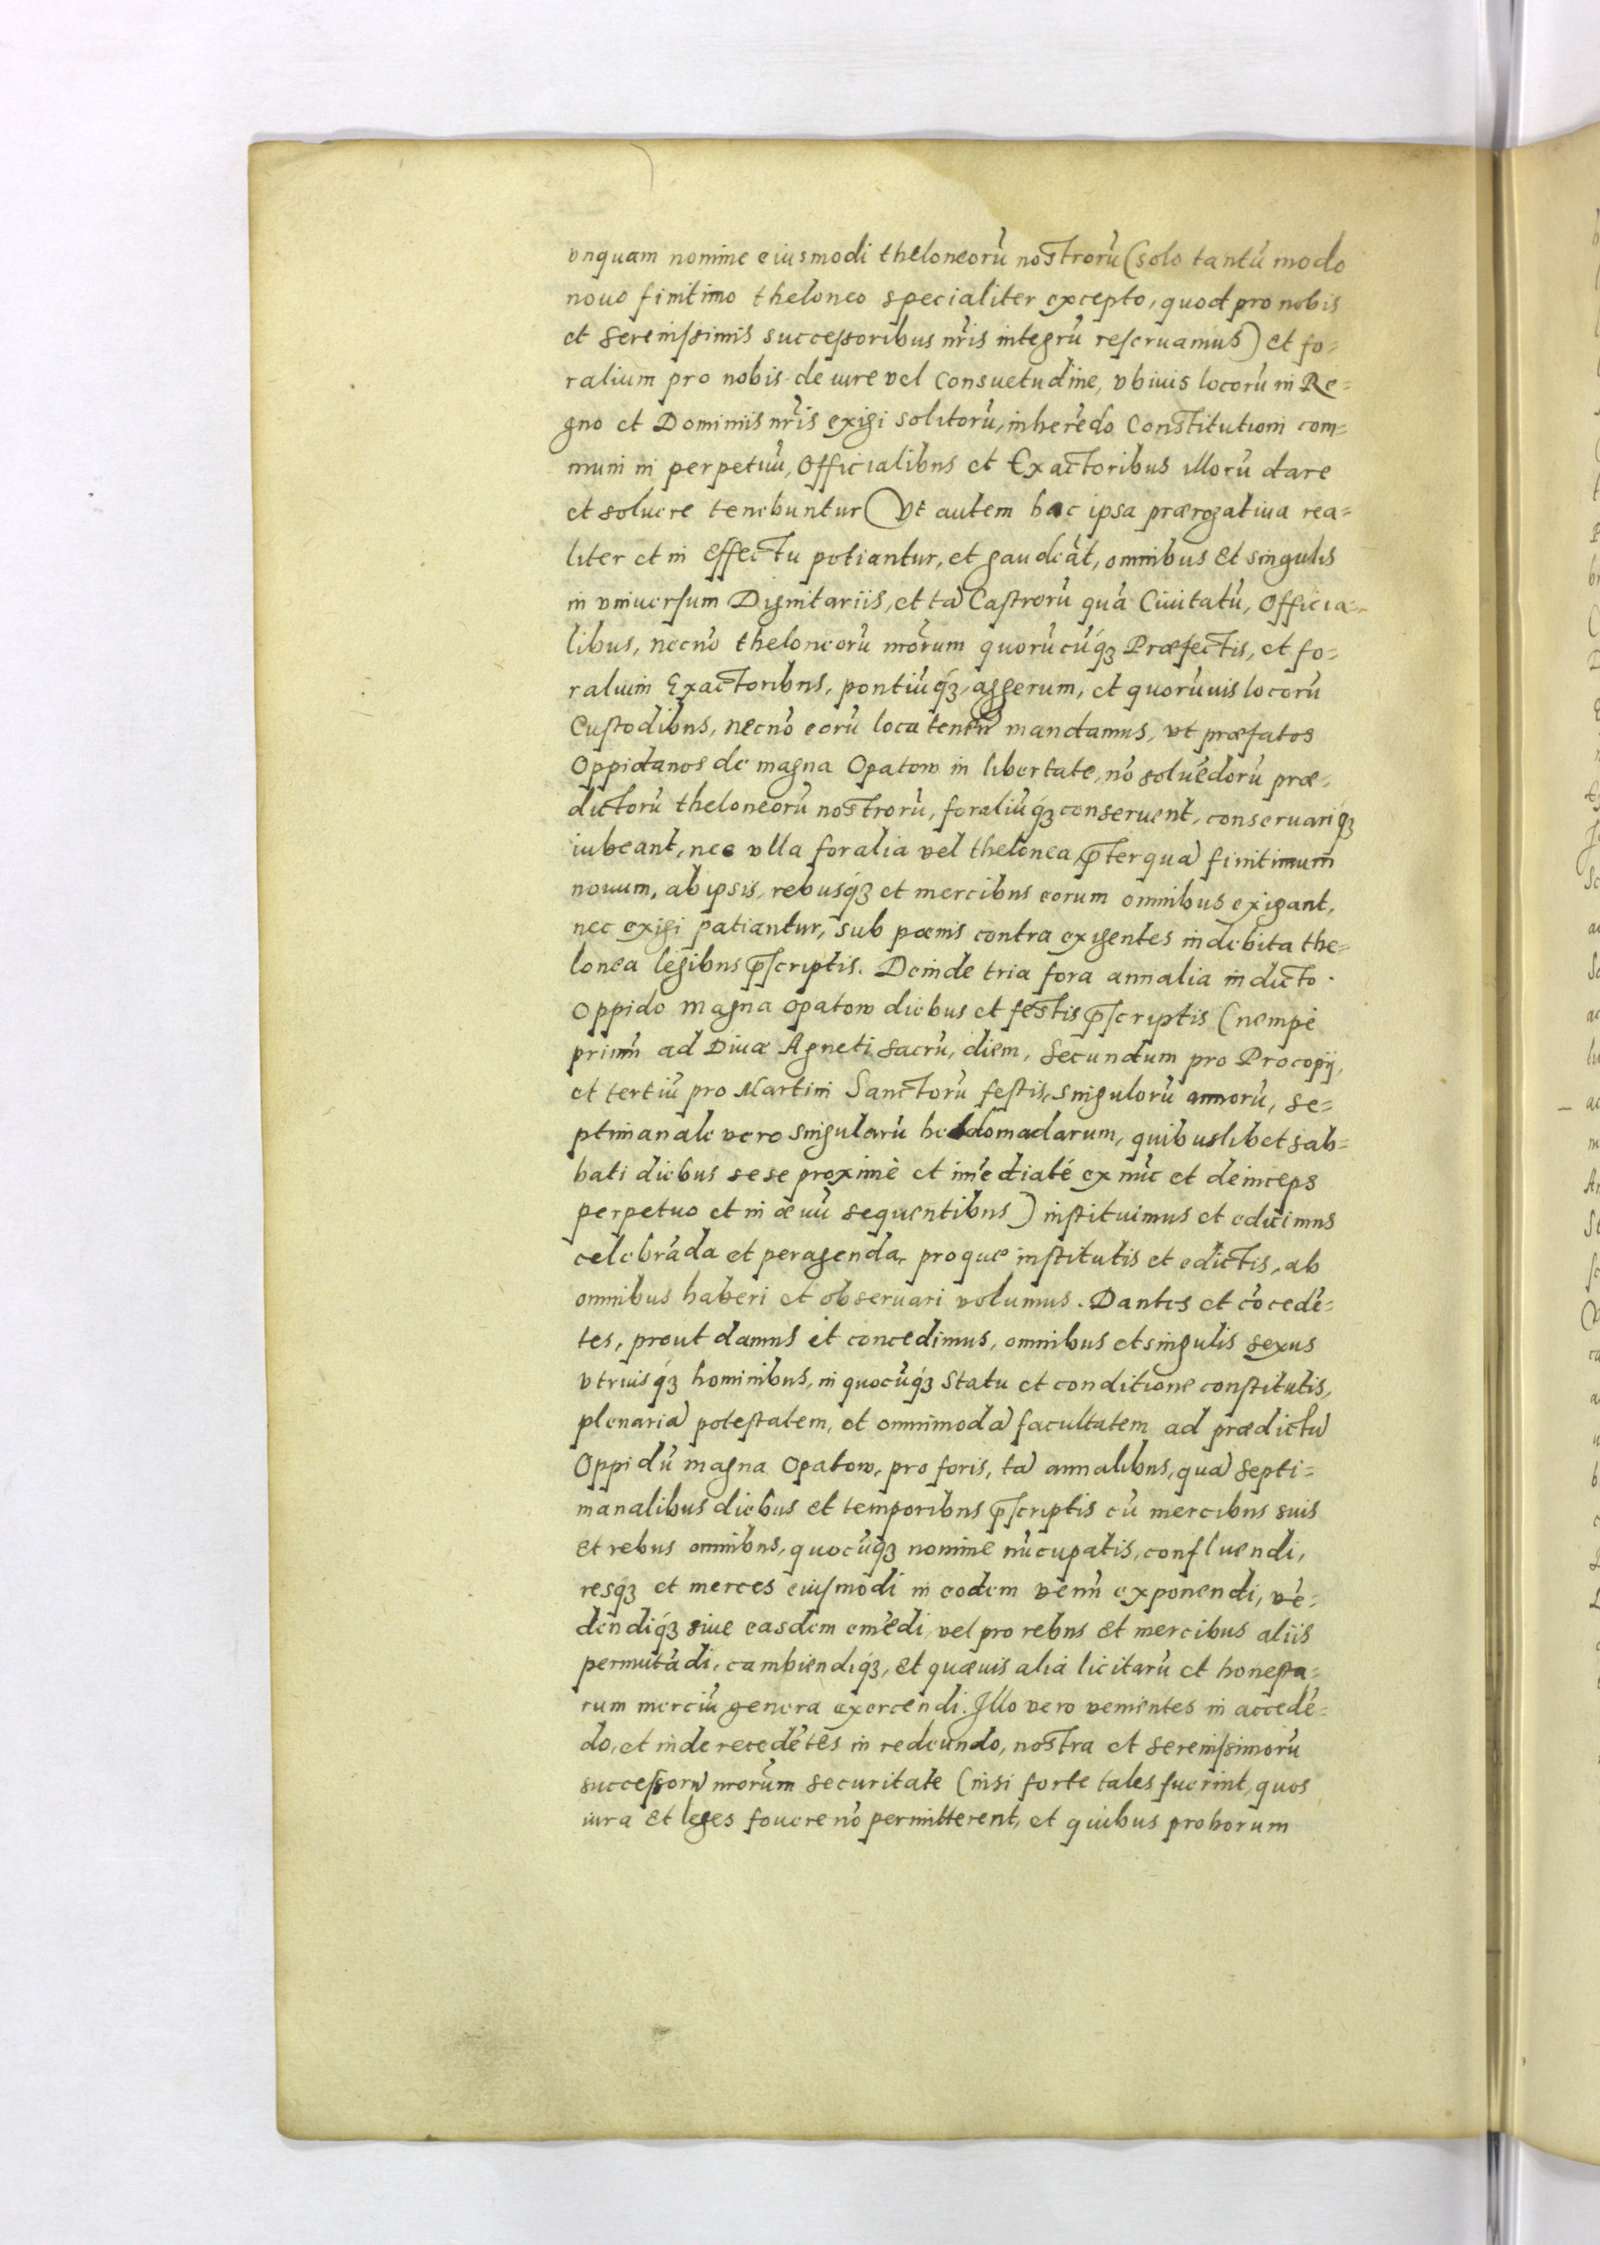 vnquam nomine eiusmodi theloneorũ nostrorũ (solo tantũ modo
nouo finitimo theloneo specialiter excepto, quod pro nobis
et serenissimis successoribus nr̃is integrũ reseruamus) et fo=
ralium pro nobis de iure vel consuetudine, vbiuis locorũ in Re=
gno et Dominiis nr̃is exigi solitorũ, inherẽdo Constitutioni com=
muni in perpetuũ, Officialibus et Exactoribus illorũ dare
et soluere tenebuntur. Vt autem hac ipsa prærogatiua rea=
liter et in effectu potiantur, et gaudeãt, omnibus et singulis
in vniuersum Dignitariis, et tã Castrorũ quã Ciuitatũ, Officia=
libus, necnõ theloneorũ nrõrum quorũcũq́ꝫ Præfectis, et fo=
ralium Exactoribus, pontiũq́ꝫ, aggerum, et quorũuis locorũ
Custodibus, necnõ eorũ loca tenen̄ mandamus, vt præfatos
Oppidanos de magna Opatow in libertate, nõ soluẽdorũ præ=
dictorũ theloneorũ nostrorũ, foraliũq́ꝫ conseruent, conseruariq́ꝫ
iubeant, nec vlla foralia vel thelonea p̄terquã finitimum
nouum, ab ipsis, rebusq́ꝫ et mercibus eorum omnibus exigant,
nec exigi patiantur, sub pœnis contra exigentes indebita the=
lonea legibus p̄scriptis. Deinde tria fora annalia in dicto
Oppido magna Opatow diebus et festis p̄scriptis (nempè
primũ ad Diuæ Agneti sacrũ, diem, secundum pro Procopij,
et tertiũ pro Martini Sanctorũ festis, singulorũ annorũ, se=
ptimanale vero singularũ hebdomadarum, quibuslibet sab=
bati diebus sese proximè et im̃ediatè ex nũc et deinceps
perpetuo et in æuũ sequentibus) instituimus et edicimus
celebrãda et peragenda, proque institutis et edictis, ab
omnibus haberi et obseruari volumus. Dantes et cõcedẽ=
tes, prout damus et concedimus, omnibus et singulis sexus
vtriusq́ꝫ hominibus, in quocũq́ꝫ statu et conditione constitutis,
plenariã potestatem, et omnimodã facultatem ad prædictũ
Oppidũ magna Opatow, pro foris, tã annalibus, quã septi=
manalibus diebus et temporibus p̄scriptis cũ mercibus suis
et rebus omnibus, quocũq́ꝫ nomine nũcupatis, confluendi,
resq́ꝫ et merces eiusmodi in eodem venũ exponendi, vẽ=
dendiq́ꝫ siue easdem emẽdi, vel pro rebus et mercibus aliis
permutãdi, cambiendiq́ꝫ, et quæuis alia licitarũ et honesta=
rum merciũ genera exercendi. Illo vero venientes in accedẽ=
do, et inde recedẽtes in redeundo, nostra et serenissimorũ
successorũ nrõrum securitate (nisi forte tales fuerint, quos
iura et leges fouere nõ permitterent, et quibus proborum